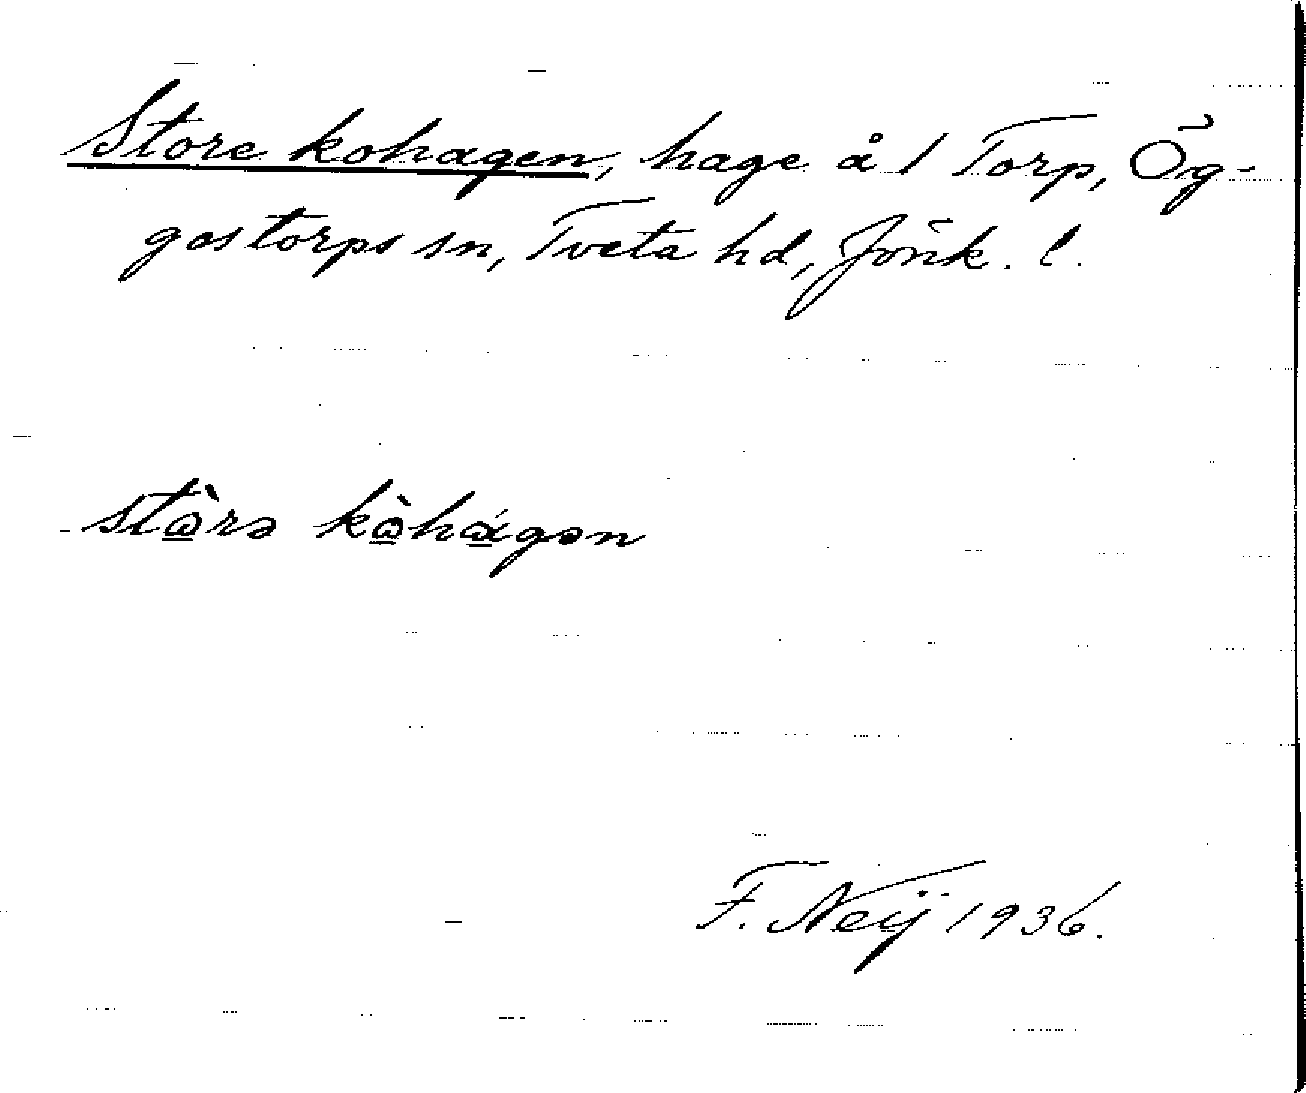 Store kohagen, hage å 1 Torp, Ög-
gestorps sn, Tveta hd, Jönk. l.
stὼ̲rə kὼ̲hά̲gən
F. Neij 1936.